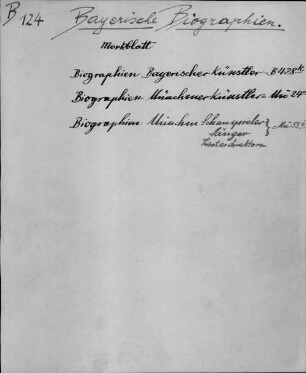 B 124 Bayerische Biographien.
Merkblatt
Biographien Bayerischer Künstler - B 478k
Biographien Münchener Künstler = Mü 24
Biographien München Schauspieler
Sänger
Theaterdirektoren